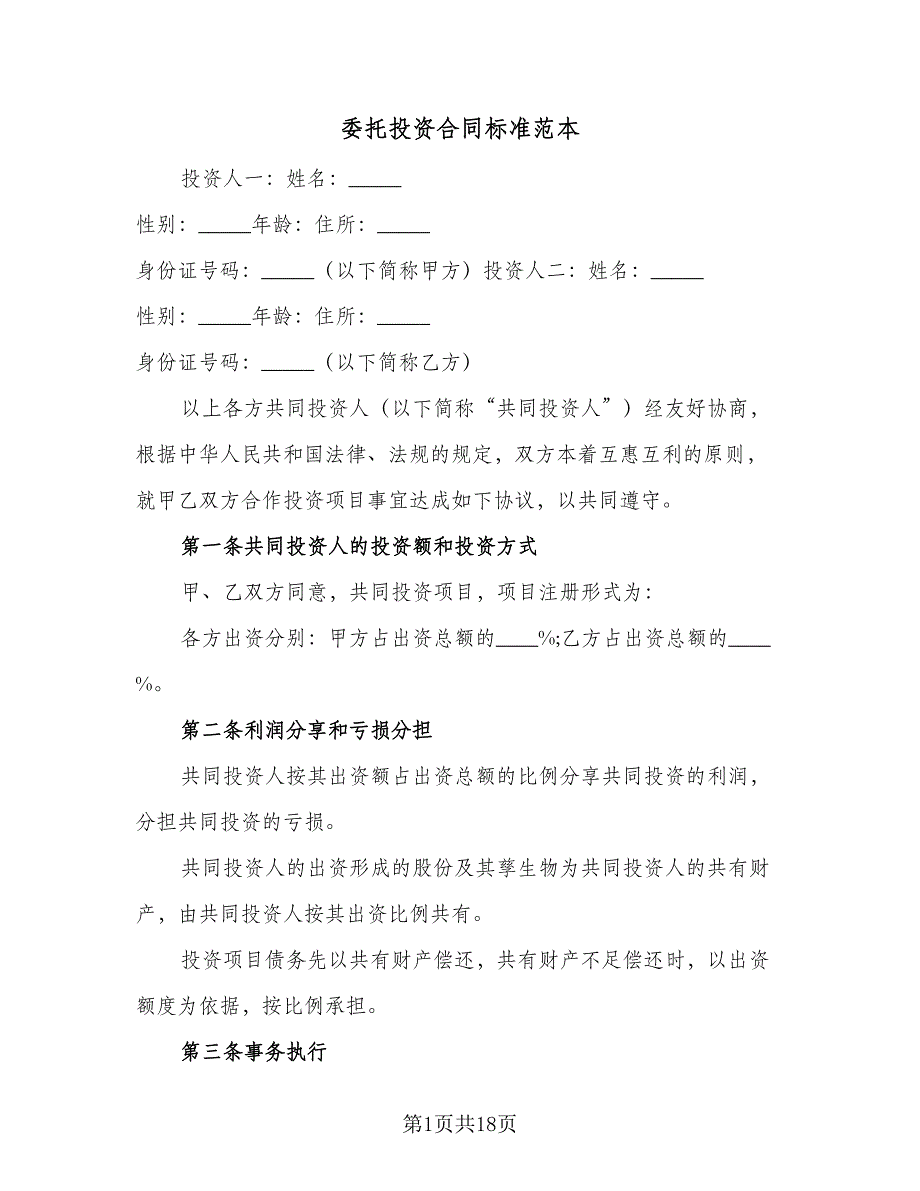 委托投资合同标准范本
投资人一：姓名：_____
性别：_____年龄：住所：_____
身份证号码：_____（以下简称甲方）投资人二：姓名：_____
性别：_____年龄：住所：_____
身份证号码：_____（以下简称乙方）
以上各方共同投资人（以下简称“共同投资人”）经友好协商，
根据中华人民共和国法律、法规的规定，双方本着互惠互利的原则，
就甲乙双方合作投资项目事宜达成如下协议，以共同遵守。
第一条共同投资人的投资额和投资方式
甲、乙双方同意，共同投资项目，项目注册形式为：
各方出资分别：甲方占出资总额的____%;乙方占出资总额的____
%。
第二条利润分享和亏损分担
共同投资人按其出资额占出资总额的比例分享共同投资的利润，
分担共同投资的亏损。
共同投资人的出资形成的股份及其孳生物为共同投资人的共有财
产，由共同投资人按其出资比例共有。
投资项目债务先以共有财产偿还，共有财产不足偿还时，以出资
额度为依据，按比例承担。
第三条事务执行
第1页共18页